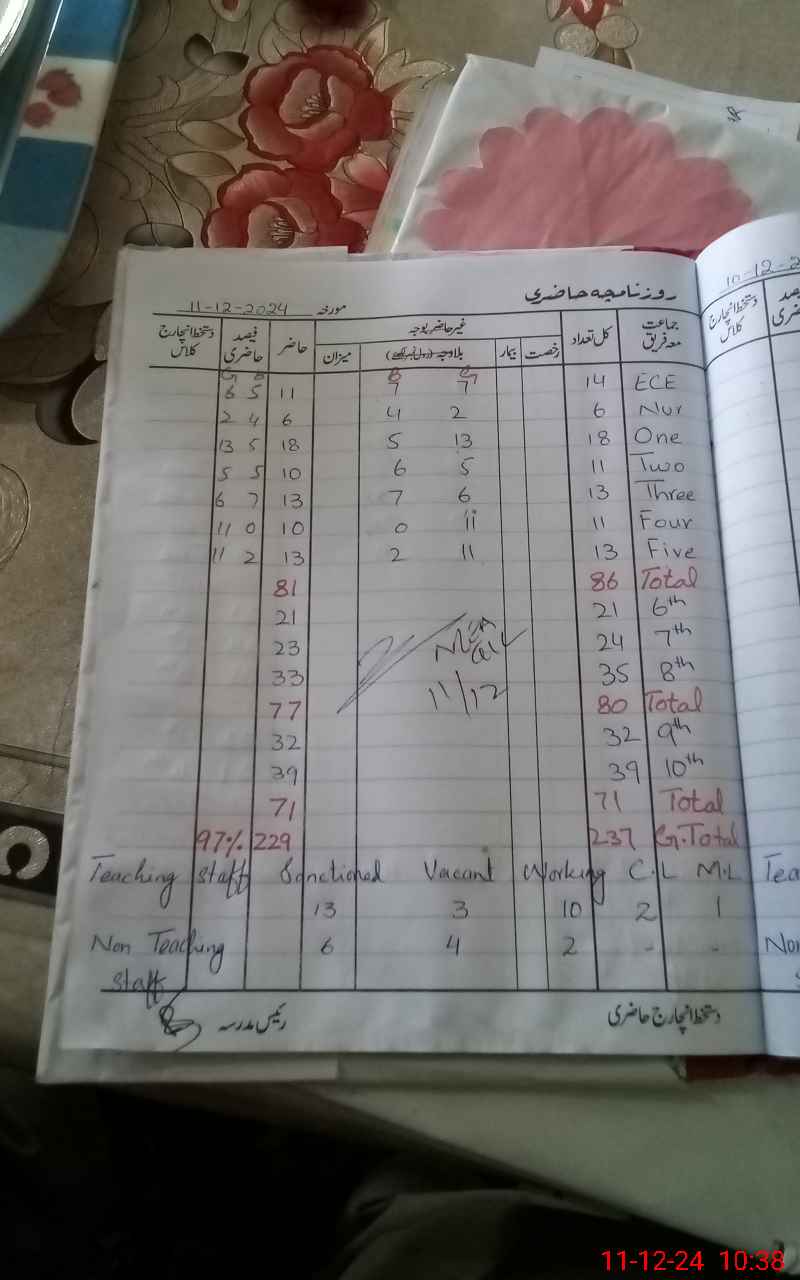 روزنامچہ حاضری
مورخہ 11-12-2024
10-12-2
جماعت معہ فریق کل تعداد غیر حاضر بوجہ حاضر فیصد حاضری دستخط انچارج کلاس
رخصت بیمار بلاوجہ میزان
B G G B
ECE 14 7 7 11 5 6
Nur 6 2 4 6 4 2
One 18 13 5 18 5 13
Two 11 5 6 10 5 5
Three 13 6 7 13 7 6
Four 11 11 0 10 0 11
Five 13 11 2 13 2 11
Total 86 81
6th 21 21
7th 24 23
8th 35 33
11/12
Total 80 77
9th 32 32
10th 39 39
Total 71 71
G.Total 237 229 97%
Teaching staff Sanctioned Vacant Working C.L M.L
13 3 10 2 1
Non Teaching 6 4 2 - -
staff
دستخط انچارج حاضری رئیس مدرسہ
دستخط انچارج کلاس
Tea
Non
11-12-24 10:38